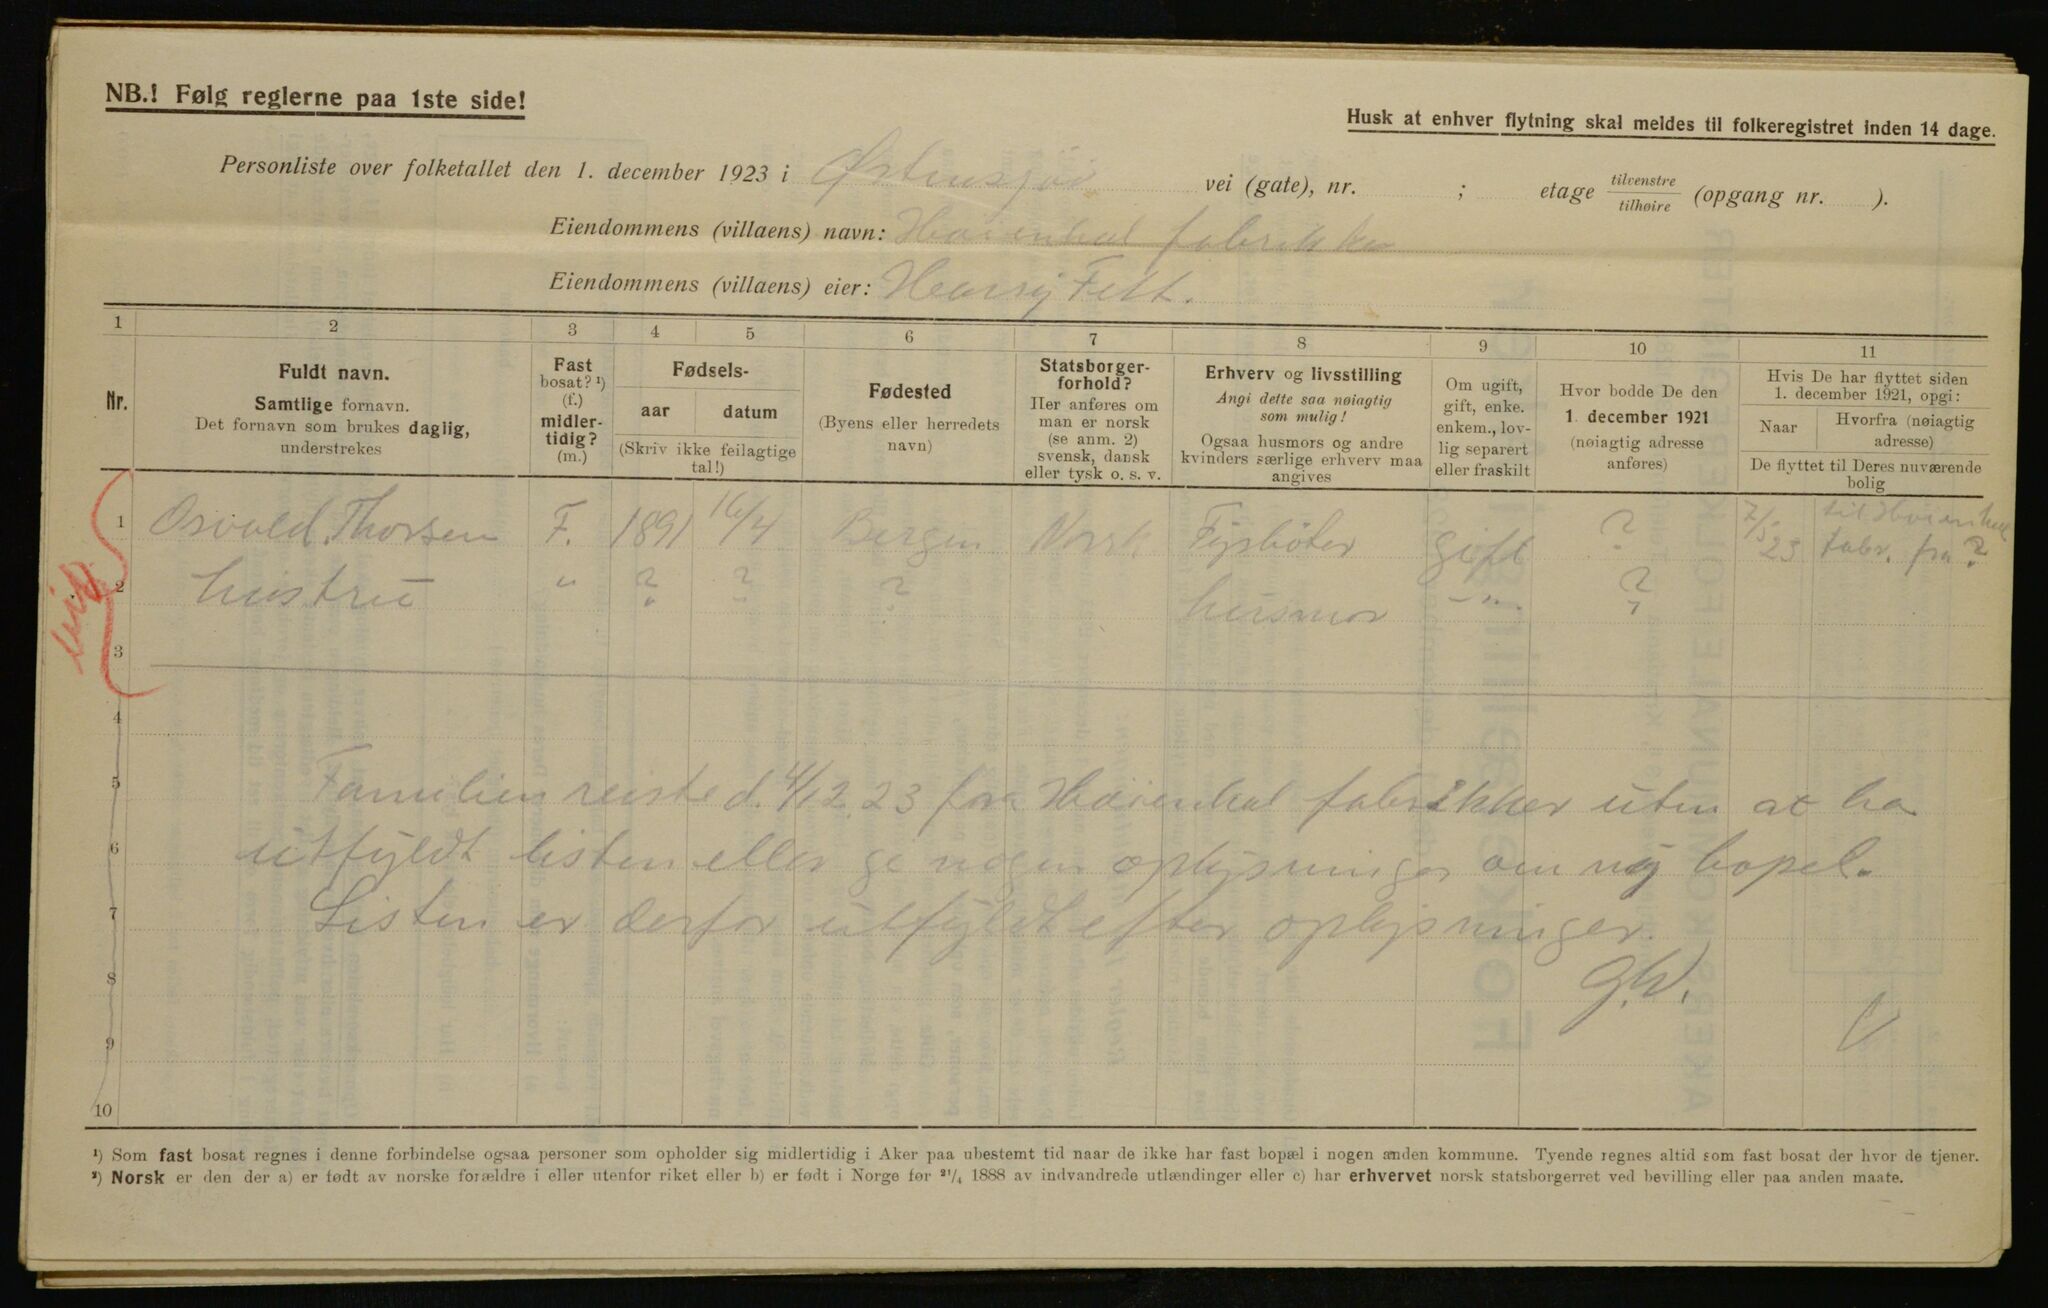 NB.! Følg reglerne paa 1ste side!
Husk at enhver flytning skal meldes til folkeregistret inden 14 dage.
Personliste over folketallet den 1. december 1923 i Østensjöi vei (gate), nr. ; etage tilvenstre tilhøire (opgang nr. ).
Eiendommens (villaens) navn: Höienhal fabrikker
Eiendommens (villaens) eier: Harry Fett.
1 2 3 4 5 6 7 8 9 10 11
Nr.
Fuldt navn.
Samtlige fornavn.
Det fornavn som brukes daglig,
understrekes
Fast
bosat? ¹)
(f.)
midler-
tidig?
(m.)
Fødsels-
aar datum
(Skriv ikke feilagtige
tal!)
Fødested
(Byens eller herredets
navn)
Statsborger-
forhold?
Her anføres om
man er norsk
(se anm. 2)
svensk, dansk
eller tysk o. s. v.
Erhverv og livsstilling
Angi dette saa nøiagtig
som mulig!
Ogsaa husmors og andre
kvinders særlige erhverv maa
angives
Om ugift,
gift, enke.
enkem., lov-
lig separert
eller fraskilt
Hvor bodde De den
1. december 1921
(nøiagtig adresse
anføres)
Hvis De har flyttet siden
1. december 1921, opgi:
Naar
Hvorfra (nøiagtig
adresse)
De flyttet til Deres nuværende
bolig
1 Osvald Thorsen F. 1891 16/4 Bergen Norsk Fyrböter gift ? 7/5 23 til Höienhal fabr. fra ?
2 hustru " ? ? ? husmor -"- ?
3
4
5 Familien reiste d. 4/12 23 fra Höienhal fabrikker uten at ha
6 utfyldt listen eller gi nogen oplysninger om ny bopel.
7 Listen er derfor utfyldt efter oplysninger.
8 G.W.
9
10
¹) Som fast bosat regnes i denne forbindelse ogsaa personer som opholder sig midlertidig i Aker paa ubestemt tid naar de ikke har fast bopæl i nogen anden kommune. Tyende regnes altid som fast bosat der hvor de tjener.
²) Norsk er den der a) er født av norske forældre i eller utenfor riket eller b) er født i Norge før ²¹/₄ 1888 av indvandrede utlændinger eller c) har erhvervet norsk statsborgerret ved bevilling eller paa anden maate.